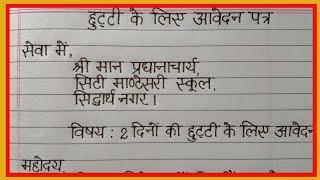 छुट्टी के लिए आवेदन पत्र
सेवा में,
श्री मान प्रधानाचार्य,
सिटी माण्टेसरी स्कूल,
सिद्धार्थ नगर।
विषय : 2 दिनों की छुट्टी के लिए आवेदन
महोदय,